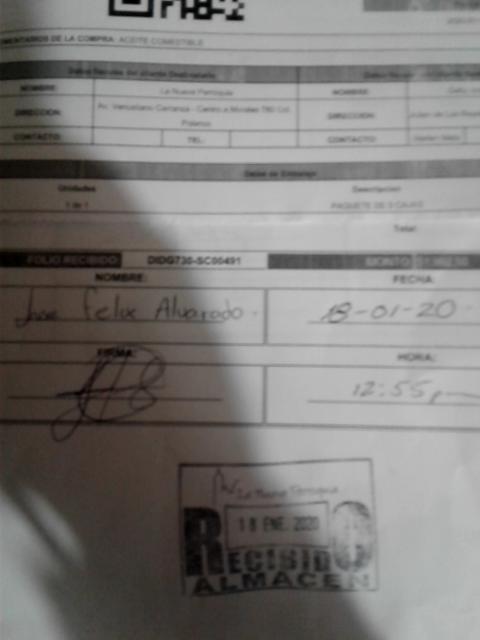 COMENTARIOS DE LA COMPRA: ACEITE COMESTIBLE
NOMBRE: La Nueva Parroquia NOMBRE:
DIRECCION: Av. Venustiano Carranza - Centro a Morales 780 Col. Polanco DIRECCION:
CONTACTO: TEL: CONTACTO:
Datos de Embarque
Unidades Descripcion
1 de 1 PAQUETE DE 3 CAJAS
Total:
FOLIO RECIBIDO DIDG730-SC00491 MONTO
NOMBRE: FECHA:
Jose Felix Alvarado. 18-01-20.
FIRMA: HORA:
12:55pm
La Nueva Parroquia
18 ENE. 2020
RECIBIDO
ALMACEN